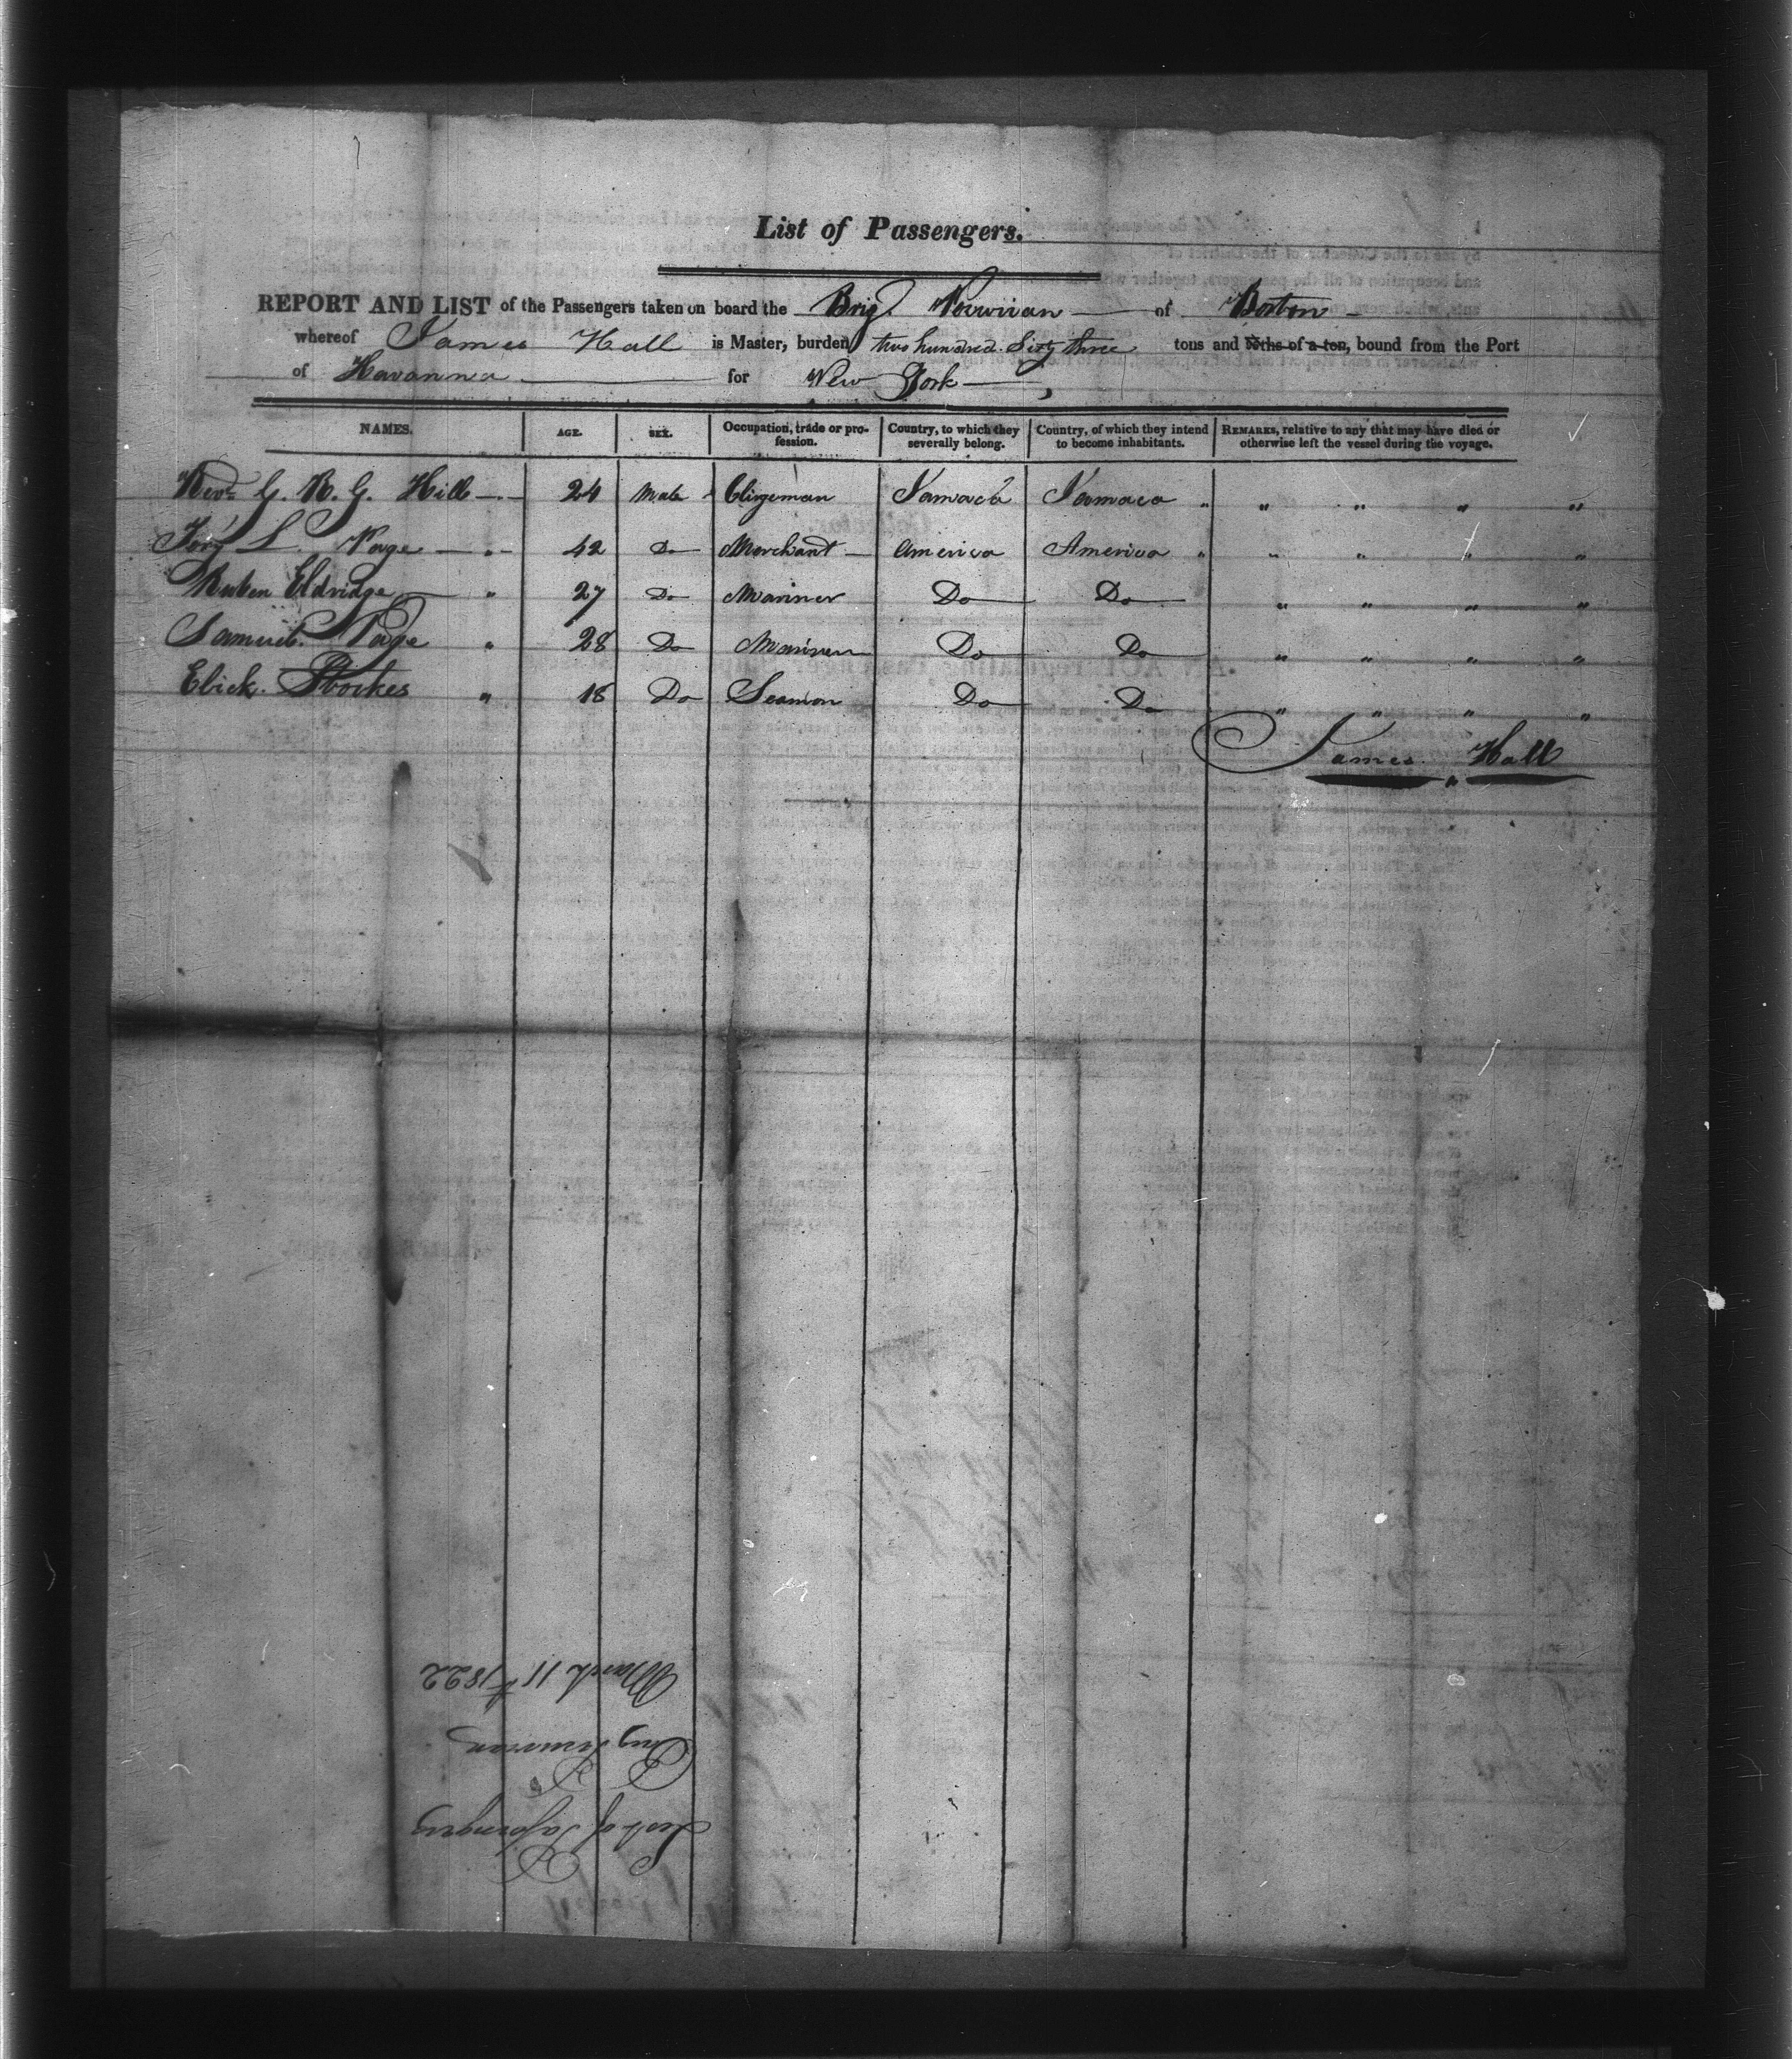 List of Passengers.
REPORT AND LIST of the Passengers taken on board the Brig Peruvian of Boston
whereof James Hall is Master, burden two hundred Sixty three tons and 95ths of a ton, bound from the Port
of Havanna for New York
NAMES. AGE. SEX. Occupation, trade or profession. Country, to which they severally belong. Country, of which they intend to become inhabitants. REMARKS, relative to any that may have died or otherwise left the vessel during the voyage.
Revd G. R. G. Hill 24 Male Clirgeman Jamaca Jamaca " " " " "
L. Page " 42 Do Merchant America America " " " " "
Ruben Eldridge " 27 Do Mariner Do Do " " " "
Samuel Page " 28 Do Mariner Do Do " " " "
Stockes " 18 Do Seamon Do Do " " " "
James Hall
List of Passengers
Brig Peruvian
March 11th 1822